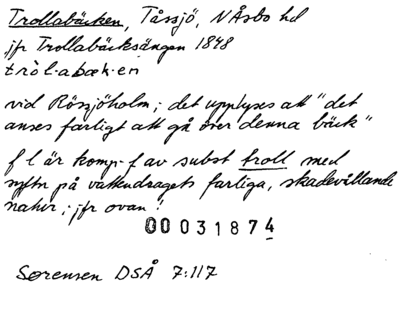 Trollabäcken, Tåssjö, NÅsbo hd
jfr Trollabäcksängen 1848
tròl·abæk·en
vid Rössjöholm; det upplyses att "det
anses farligt att gå över denna bäck"
f l är komp.f av subst troll med
syftn på vattendragets farliga, skadevållande
natur; jfr ovan!
00031874
Sørensen DSÅ 7:117